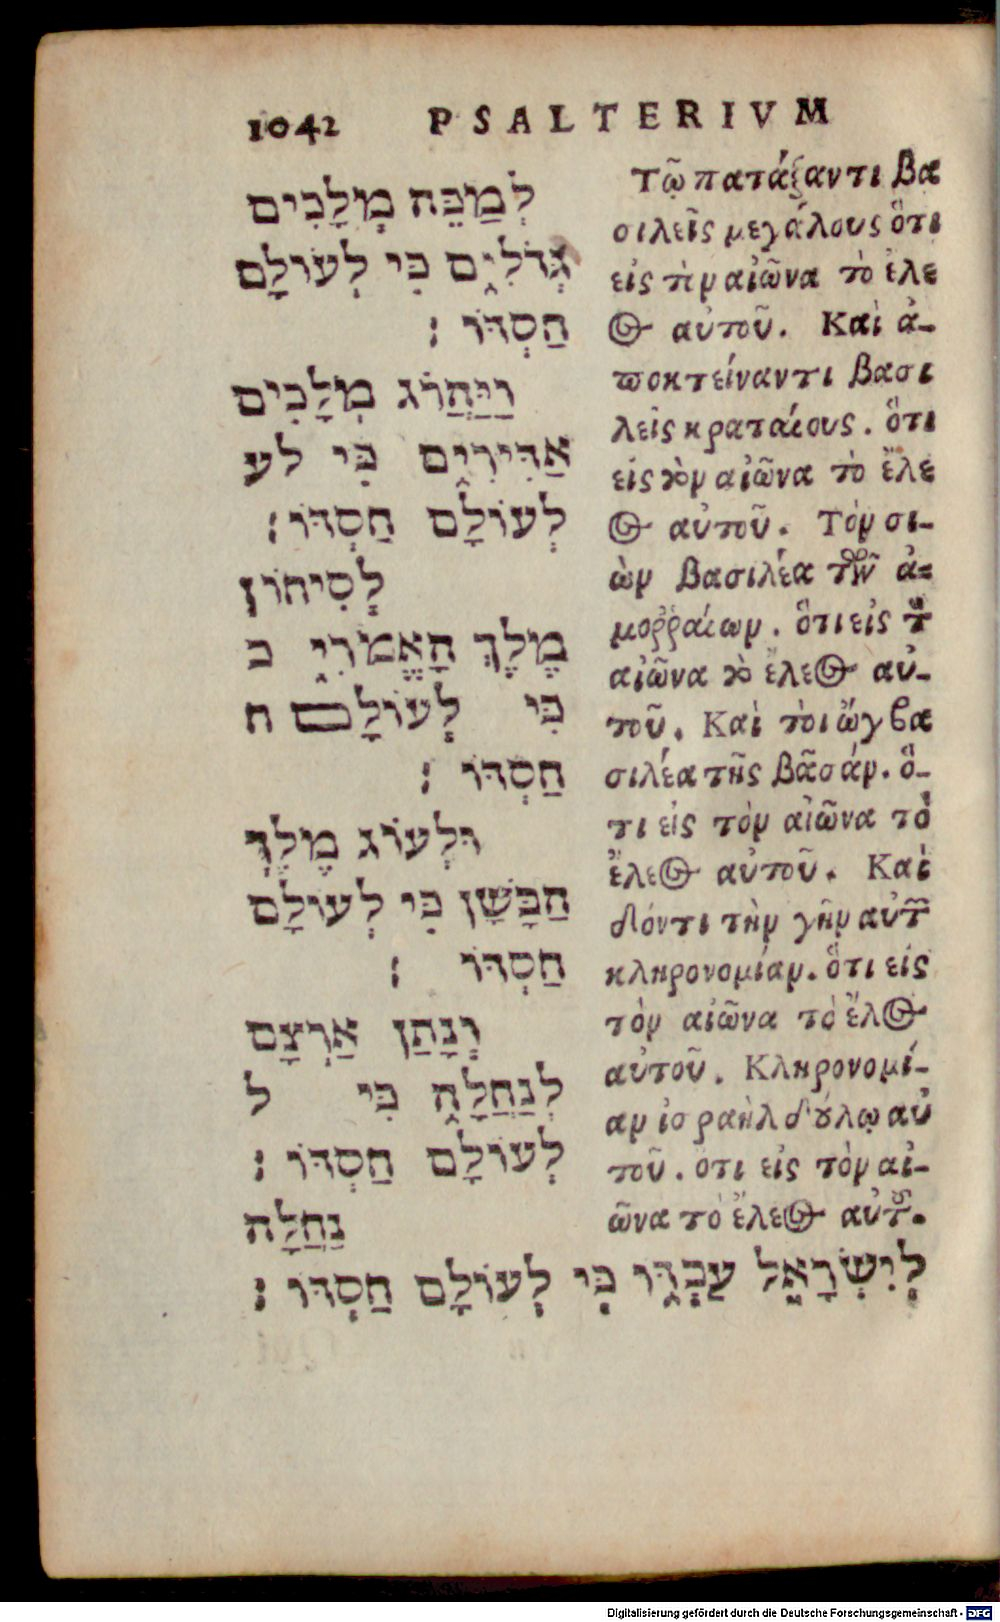 1042 PSALTERIVM
לְמַכֵּה מְלָכִים
גְּדֹלִי֑ם כִּי לְעוֹלָם
חַסְדּוֹ ׃
וַיַּהֲרֹוג מְלָכִים
אַדִּירִי֑ם כִּי לע
לְעוֹלָם חַסְדּוֹ׃
לְסִיחוֹן
מֶלֶךְ הָאֱמֹרִי֑ כ
כִּי לְעוֹלָם ח
חַסְדּוֹ ׃
וּלְעוֹג מֶלֶךְ
הַבָּשָׁן כִּי לְעוֹלָם
חַסְדּוֹ ׃
וְנָתַן אַרְצָם
לְנַחֲלָה֑ כִּי ל
לְעוֹלָם חַסְדּוֹ ׃
נַחֲלָה
לְיִשְׂרָאֵל עַבְדּ֑וֹ כִּי לְעוֹלָם חַסְדּוֹ ׃
Τῷ πατάξαντι βα
σιλεῖς μεγάλους ὅτι
εἰς τὸν αἰῶνα τὸ ἐλε
ος αὐτοῦ. Καὶ ἀ-
ποκτείναντι βασι
λεῖς κραταίους. ὅτι
εἰς τὸν αἰῶνα τὸ ἔλε
ος αὐτοῦ. Τὸν σι-
ὼν βασιλέα τῶν ἀ=
μοῤῥαίων. ὅτι εἰς τὸν
αἰῶνα τὸ ἔλεος αὐ-
τοῦ. Καὶ τὸν ὤγ βα
σιλέα τῆς βᾶσάν. ὅ-
τι εἰς τὸν αἰῶνα τὸ
ἔλεος αὐτοῦ. Καὶ
δόντι τὴν γῆν αὐτῶν
κληρονομίαν. ὅτι εἰς
τὸν αἰῶνα τὸ ἔλεος
αὐτοῦ. Κληρονομί-
αν ἰσραὴλ δούλῳ αὐ
τοῦ. ὅτι εἰς τὸν αἰ-
ῶνα τὸ ἔλεος αὐτοῦ.
Digitalisierung gefördert durch die Deutsche Forschungsgemeinschaft - DFG